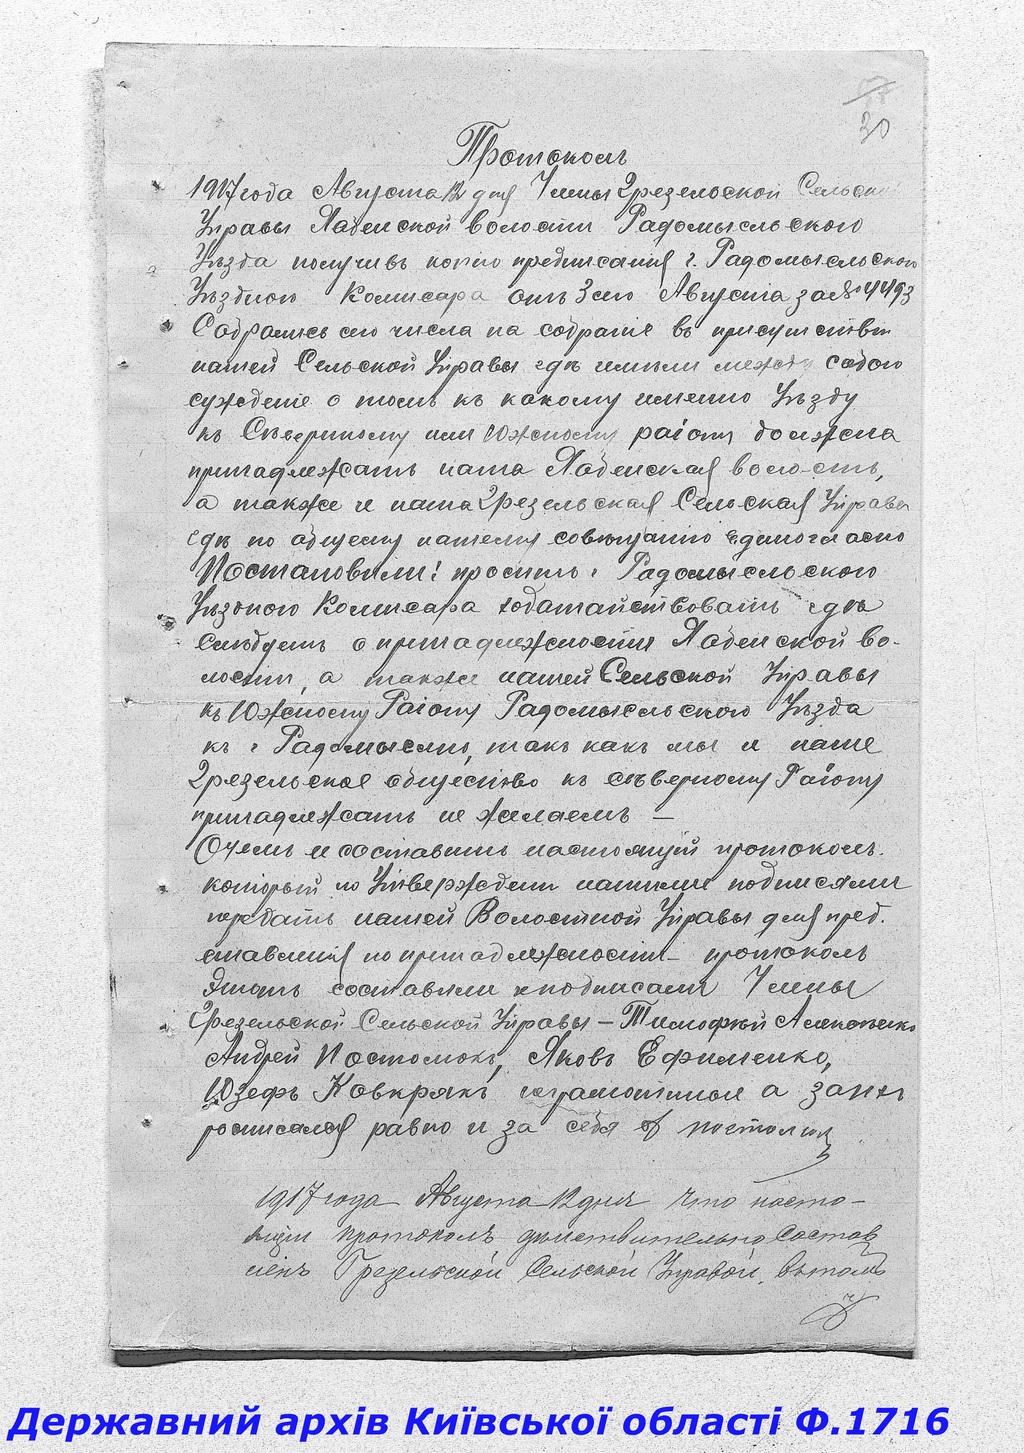 30
Протоколъ
1917 года Августа 12 дня Члены Грезелоской Сельской
Управы Хабенской волости Радомысльского
Уѣзда получивъ копiю предписанiя г. Радомысльского
Уѣздного Комисара отъ 3 сего Августа за № 4493
Собрались сего числа на собранiе въ присутствiи
нашей Сельской Управы гдѣ имѣли между собою
сужденiе о томъ къ какому именно Уѣзду
къ Сѣверному или Южному раiону должна
принадлежать наша Хабенская волость,
а также и наша Грезельская Сельская Управа
гдѣ по общему нашему совѣщанiю единогласно
Постановили: просить г. Радомысльского
Уѣзного Комисара ходатайствовать гдѣ
слѣдуетъ о принадлежности Хабенской во-
лости, а также нашей Сельской Управы
къ Южному Раiону Радомысльского Уѣзда
къ г Радомыслю, такъ какъ мы и наше
Грезельское общество къ сѣверному Раiону
принадлежать не желаемъ —
О чемъ и составить настоящiй протоколъ.
который по Утверждети нашими подписями
передать нашей Волостной Управы для пред.
ставленiя по принадлежности — протоколъ
Этотъ составили и подписали Члены
Грезельской Сельской Управы — Тимофѣй
Андрей Постолюкъ, Яковъ Ефименко,
Юзефъ Ковкрякъ неграмотные а за нихъ
росписался равно и за себя
1917 года Августа 12 дня что насто-
ящiй протоколъ дѣйствительно состав
ленъ Грезельской Сельской Управой, въ томъ
Державний архів Київської області Ф.1716